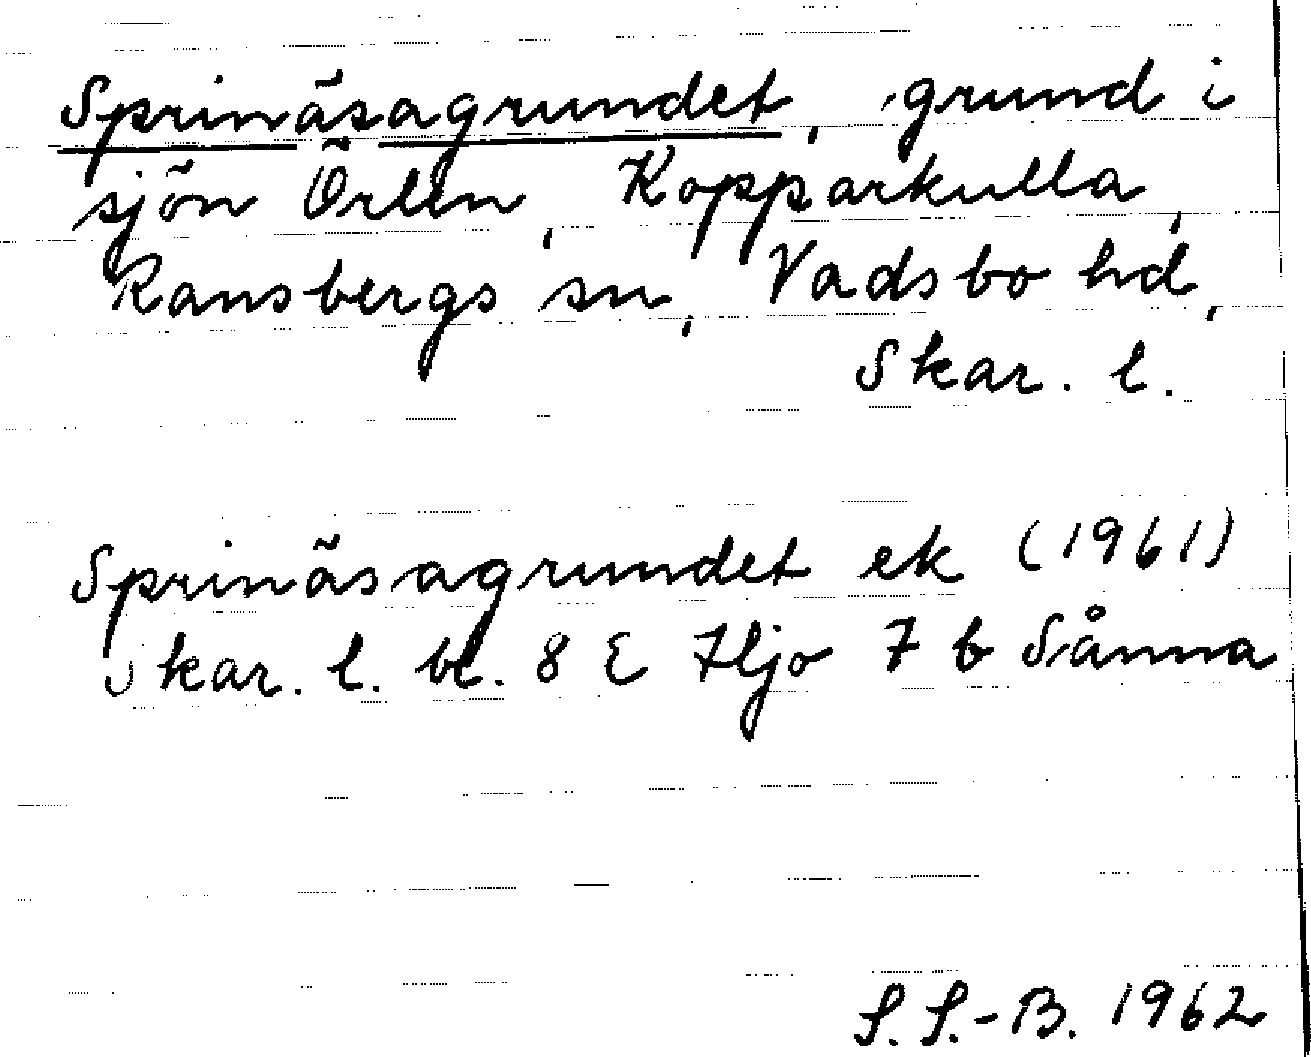 Sprinäsagrundet, grund i
sjön Örlen, Kopparkulla,
Ransbergs sn, Vadsbo hd,
Skar. l.
Sprinäsagrundet ek (1961)
Skar. l. bl. 8 E Hjo 7 b Sånna
S. S.-B. 1962